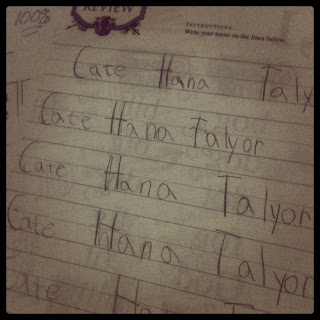 100%
REVIEW
INSTRUCTIONS:
Write your name on the lines below.
Cate Hana Taly
Cate Hana Talyor
Cate Hana Talyor
Cate Hana Talyor
Cate Ha T